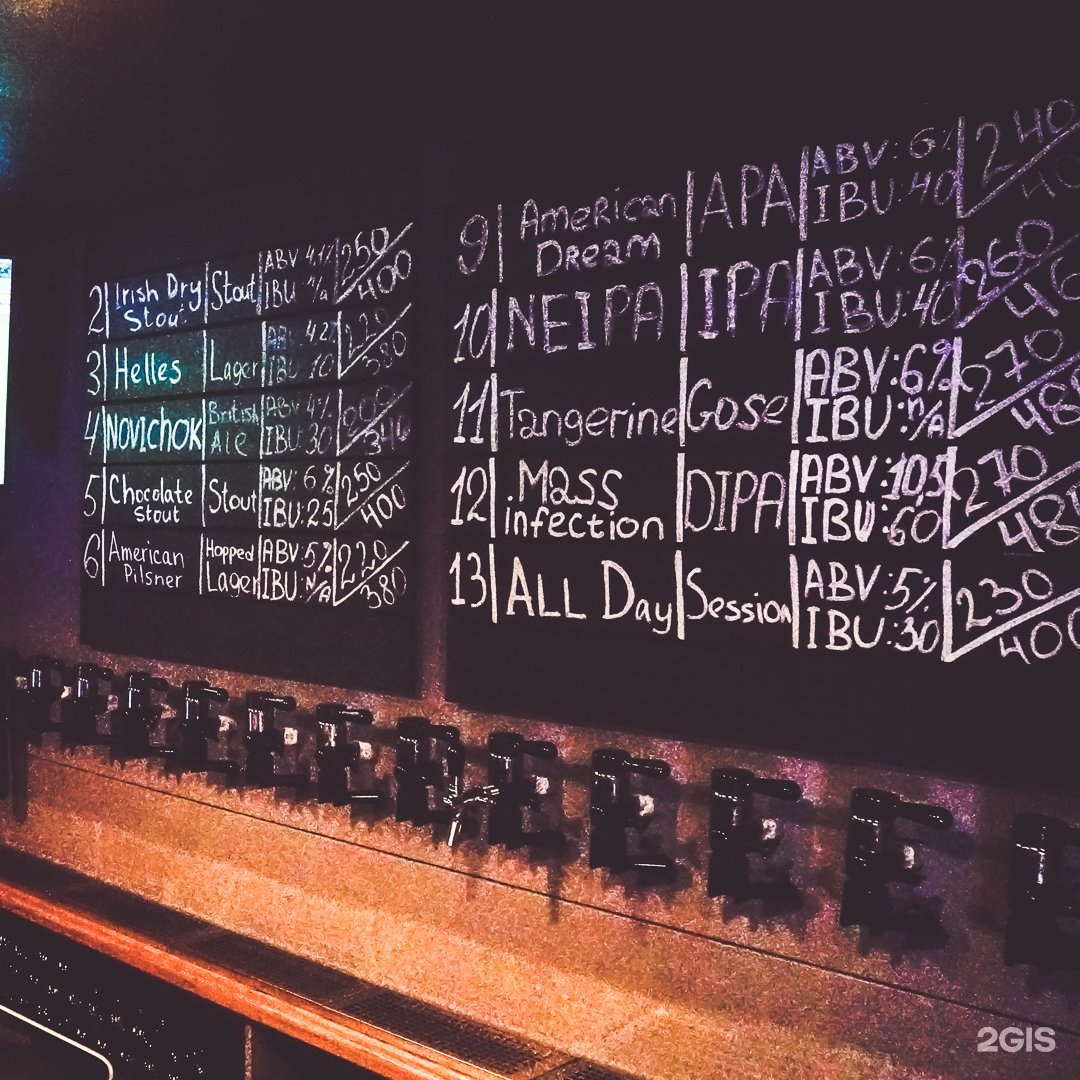 2 Irish Dry Stout Stout ABV 4.1% IBU n/a 250 400
3 Helles Lager ABV 4.2 IBU 10 220 380
4 NOVICHOK British Ale ABV 4% IBU 30
5 Chocolate Stout Stout ABV: 6% IBU: 25 250 400
6 American Pilsner Hopped Lager ABV: 5% IBU: N/A 220 380
9 American Dream APA ABV: 6% IBU: 40 240
10 NEIPA IPA ABV: 6% IBU: 40 260
11 Tangerine Gose ABV: 6% IBU: n/A 270 480
12 Mass infection DIPA ABV: 10,5 IBU: 60 270 480
13 ALL Day Session ABV: 5% IBU: 30 230 400
2GIS